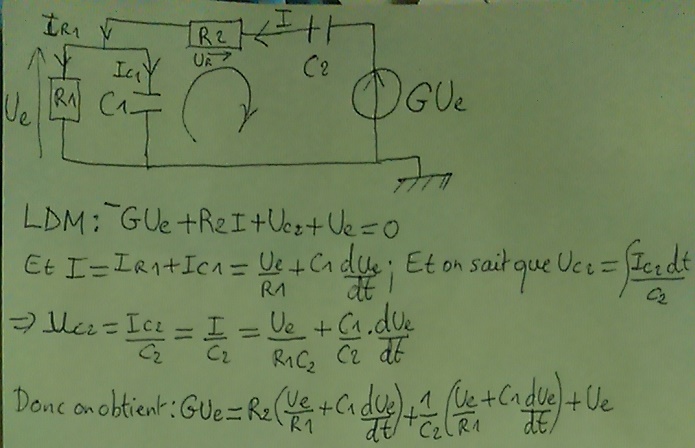 IR1 R2 I
UR C2
Ue R1 Ic1 C1 GUe
LDM: -GUe+R2I+Uc2+Ue=0
Et I=IR1+IC1=Ue/R1+C1 dUe/dt; Et on sait que Uc2=∫Ic2dt/C2
⇒ Uc2=Ic2/C2=I/C2=Ue/R1C2+C1/C2.dUe/dt
Donc on obtient: GUe=R2(Ue/R1+C1dUe/dt)+1/C2(Ue/R1+C1dUe/dt)+Ue